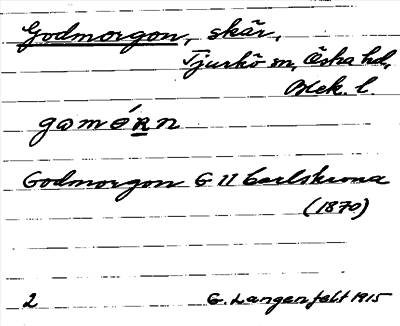 Godmorgon, skär,
Tjurkö sn, Östra hd,
Blek. l.
gomórn
Godmorgon G 11 Carlskrona
(1870)
2 G. Langenfelt 1915